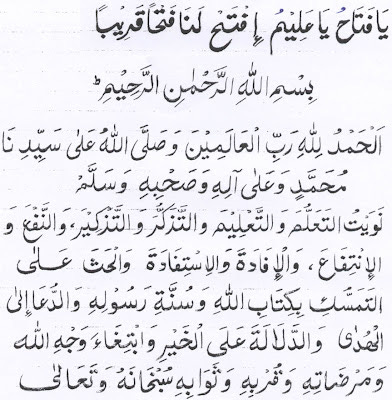 يَا فَتَاحُ يَا عَلِيْمُ إِفْتَحْ لَنَا فَتْحًا قَرِيْبًا
بِسْمِ اللهِ الرَّحْمٰنِ الرَّحِيْمِ
اَلْحَمْدُ لِلّٰهِ رَبِّ الْعَالَمِيْنَ وَصَلَّى اللهُ عَلَى سَيِّدِنَا
مُحَمَّدٍ وَعَلَى آلِهِ وَصَحْبِهِ وَسَلَّمْ
نَوَيْتُ التَّعَلُّمَ وَالتَّعْلِيْمَ وَالتَّذَكُّرَ وَالتَّذْكِيْرَ، وَالنَّفْعَ وَ
الإِنْتِفَاعَ، وَالْإِفَادَةَ وَالإِسْتِفَادَةَ وَالْحَثَّ عَلَى
التَّمَسُّكِ بِكِتَابِ اللهِ وَسُنَّةِ رَسُوْلِهِ وَالدُّعَاءَ إِلَى
الْهُدَى وَالدَّلَالَةَ عَلَى الْخَيْرِ وَابْتِغَاءَ وَجْهِ اللهِ
وَمَرْضَاتِهِ وَقُرْبِهِ وَثَوَابِهِ سُبْحَانَهُ وَتَعَالَى